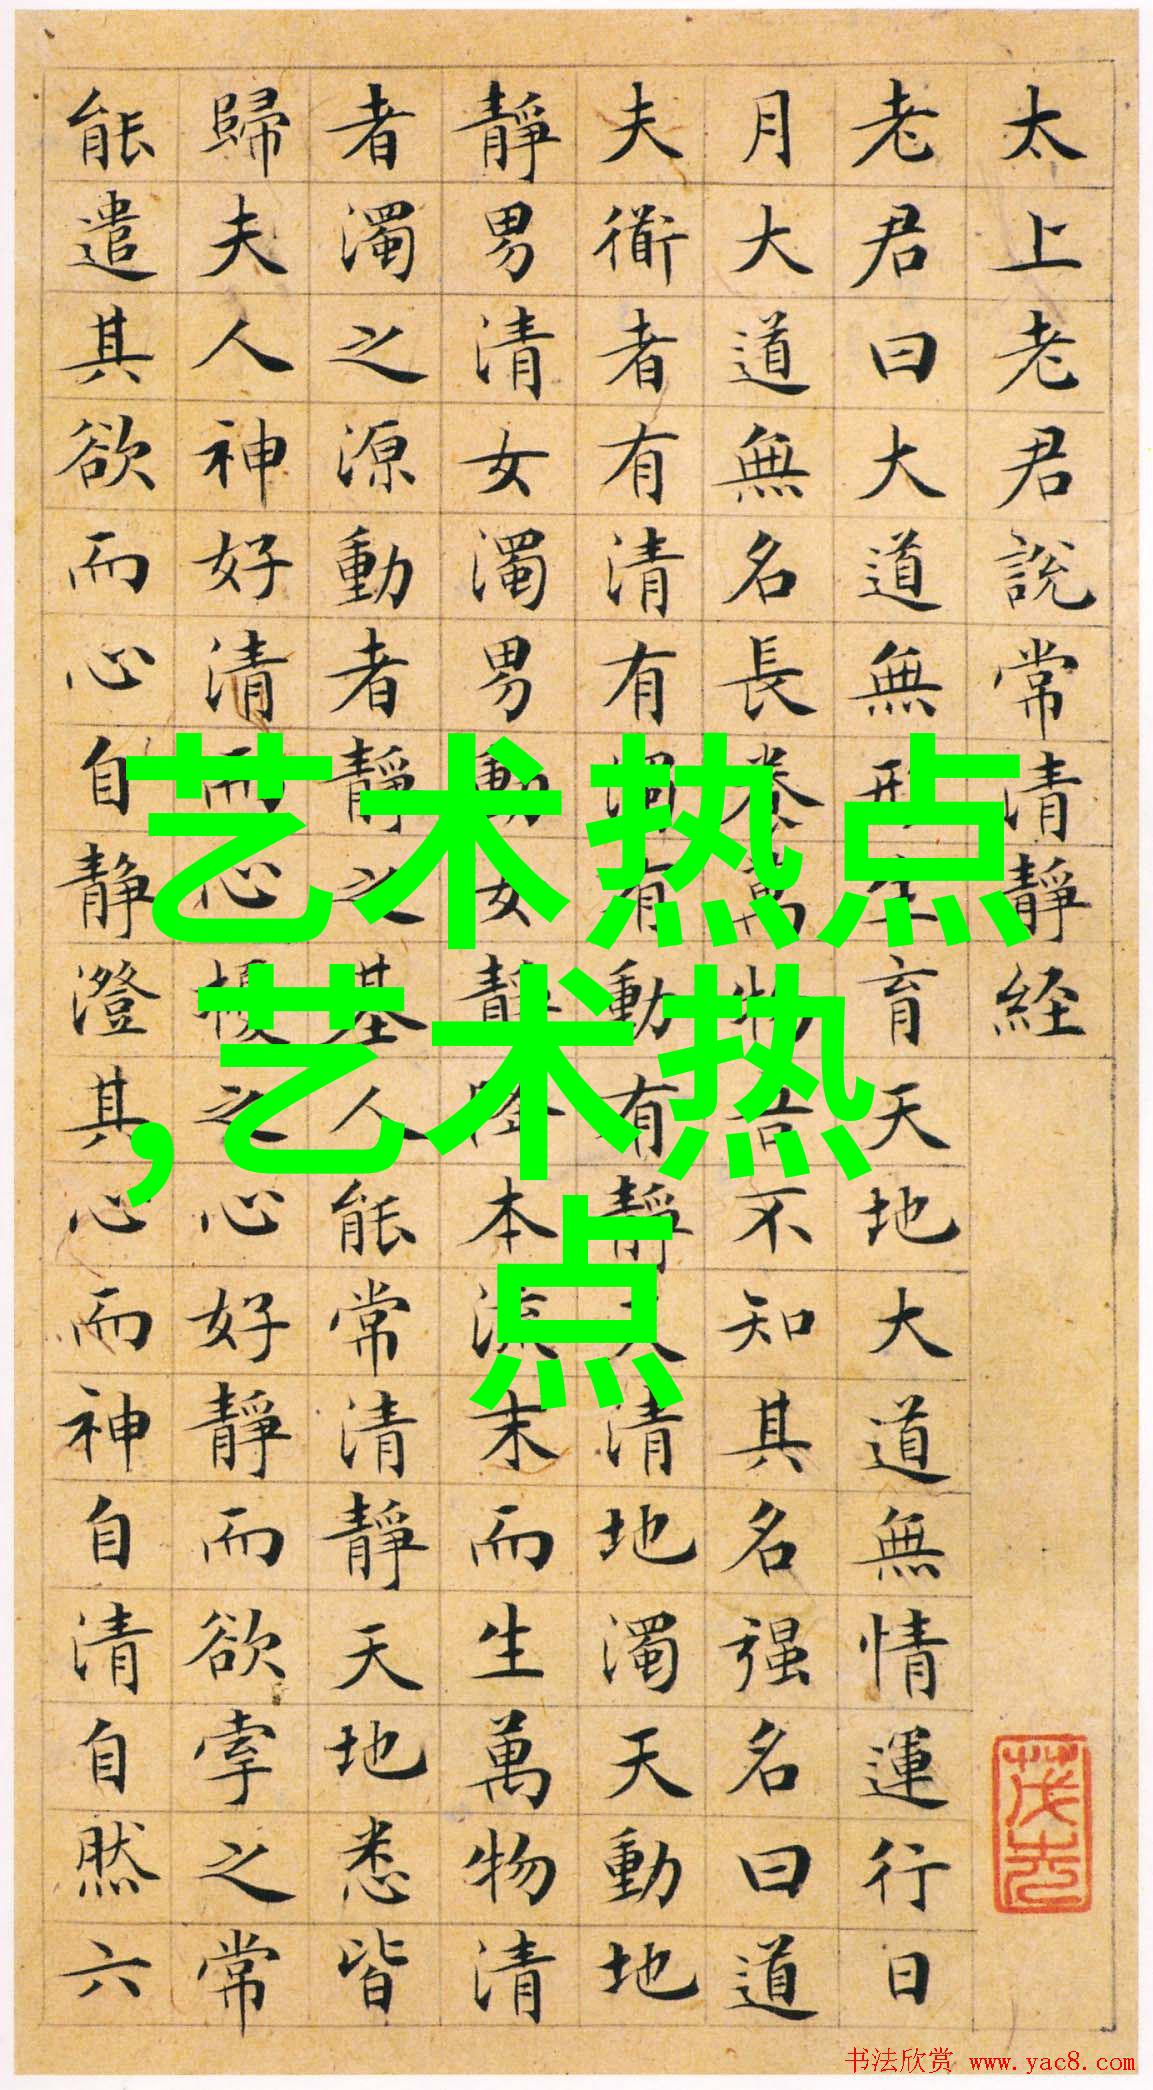 太上老君說常清靜経
老君曰大道無形生育天地大道無情運行日
月大道無名長養萬物吾不知其名强名曰道
夫衜者有清有濁有動有靜天清地濁天動地
靜男清女濁男動女靜降本流末而生萬物清
者濁之源動者靜之基人能常清靜天地悉皆
歸夫人神好清而心擾之心好靜而欲牽之常
能遣其欲而心自静澄其心而神自清自然六
艺术热点
,艺术热
点
书法欣赏 www.yac8.com